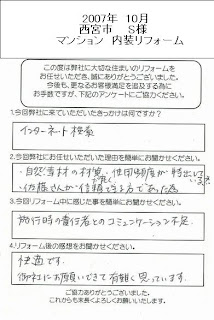 2007年 10月
西宮市 S様
マンション 内装リフォーム
この度は弊社に大切な住まいのリフォームを
お任せいただき、誠にありがとうございました。
今後も、更なるお客様満足を追及する為に
お手数ですが、下記のアンケートにご協力ください。
1.今回弊社に来ていただいたきっかけは何ですか?
インターネット検索
2.今回弊社にお任せいただいた理由を簡単にお聞かせください。
・自然素材の知識、使用頻度が
・八幡さんが信頼できると思った為
3.今回リフォーム中に感じた事を簡単にお聞かせください。
施行時の責任者とのコミュニケーション不足
4.リフォーム後の感想をお聞かせください。
快適です。
御社にお願いできて有難く思っています。
ご協力ありがとうございました。
これからも末長くよろしくお願いいたします。